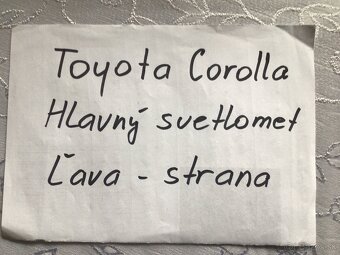 Toyota Corolla
Hlavný svetlomet
Ľava - strana